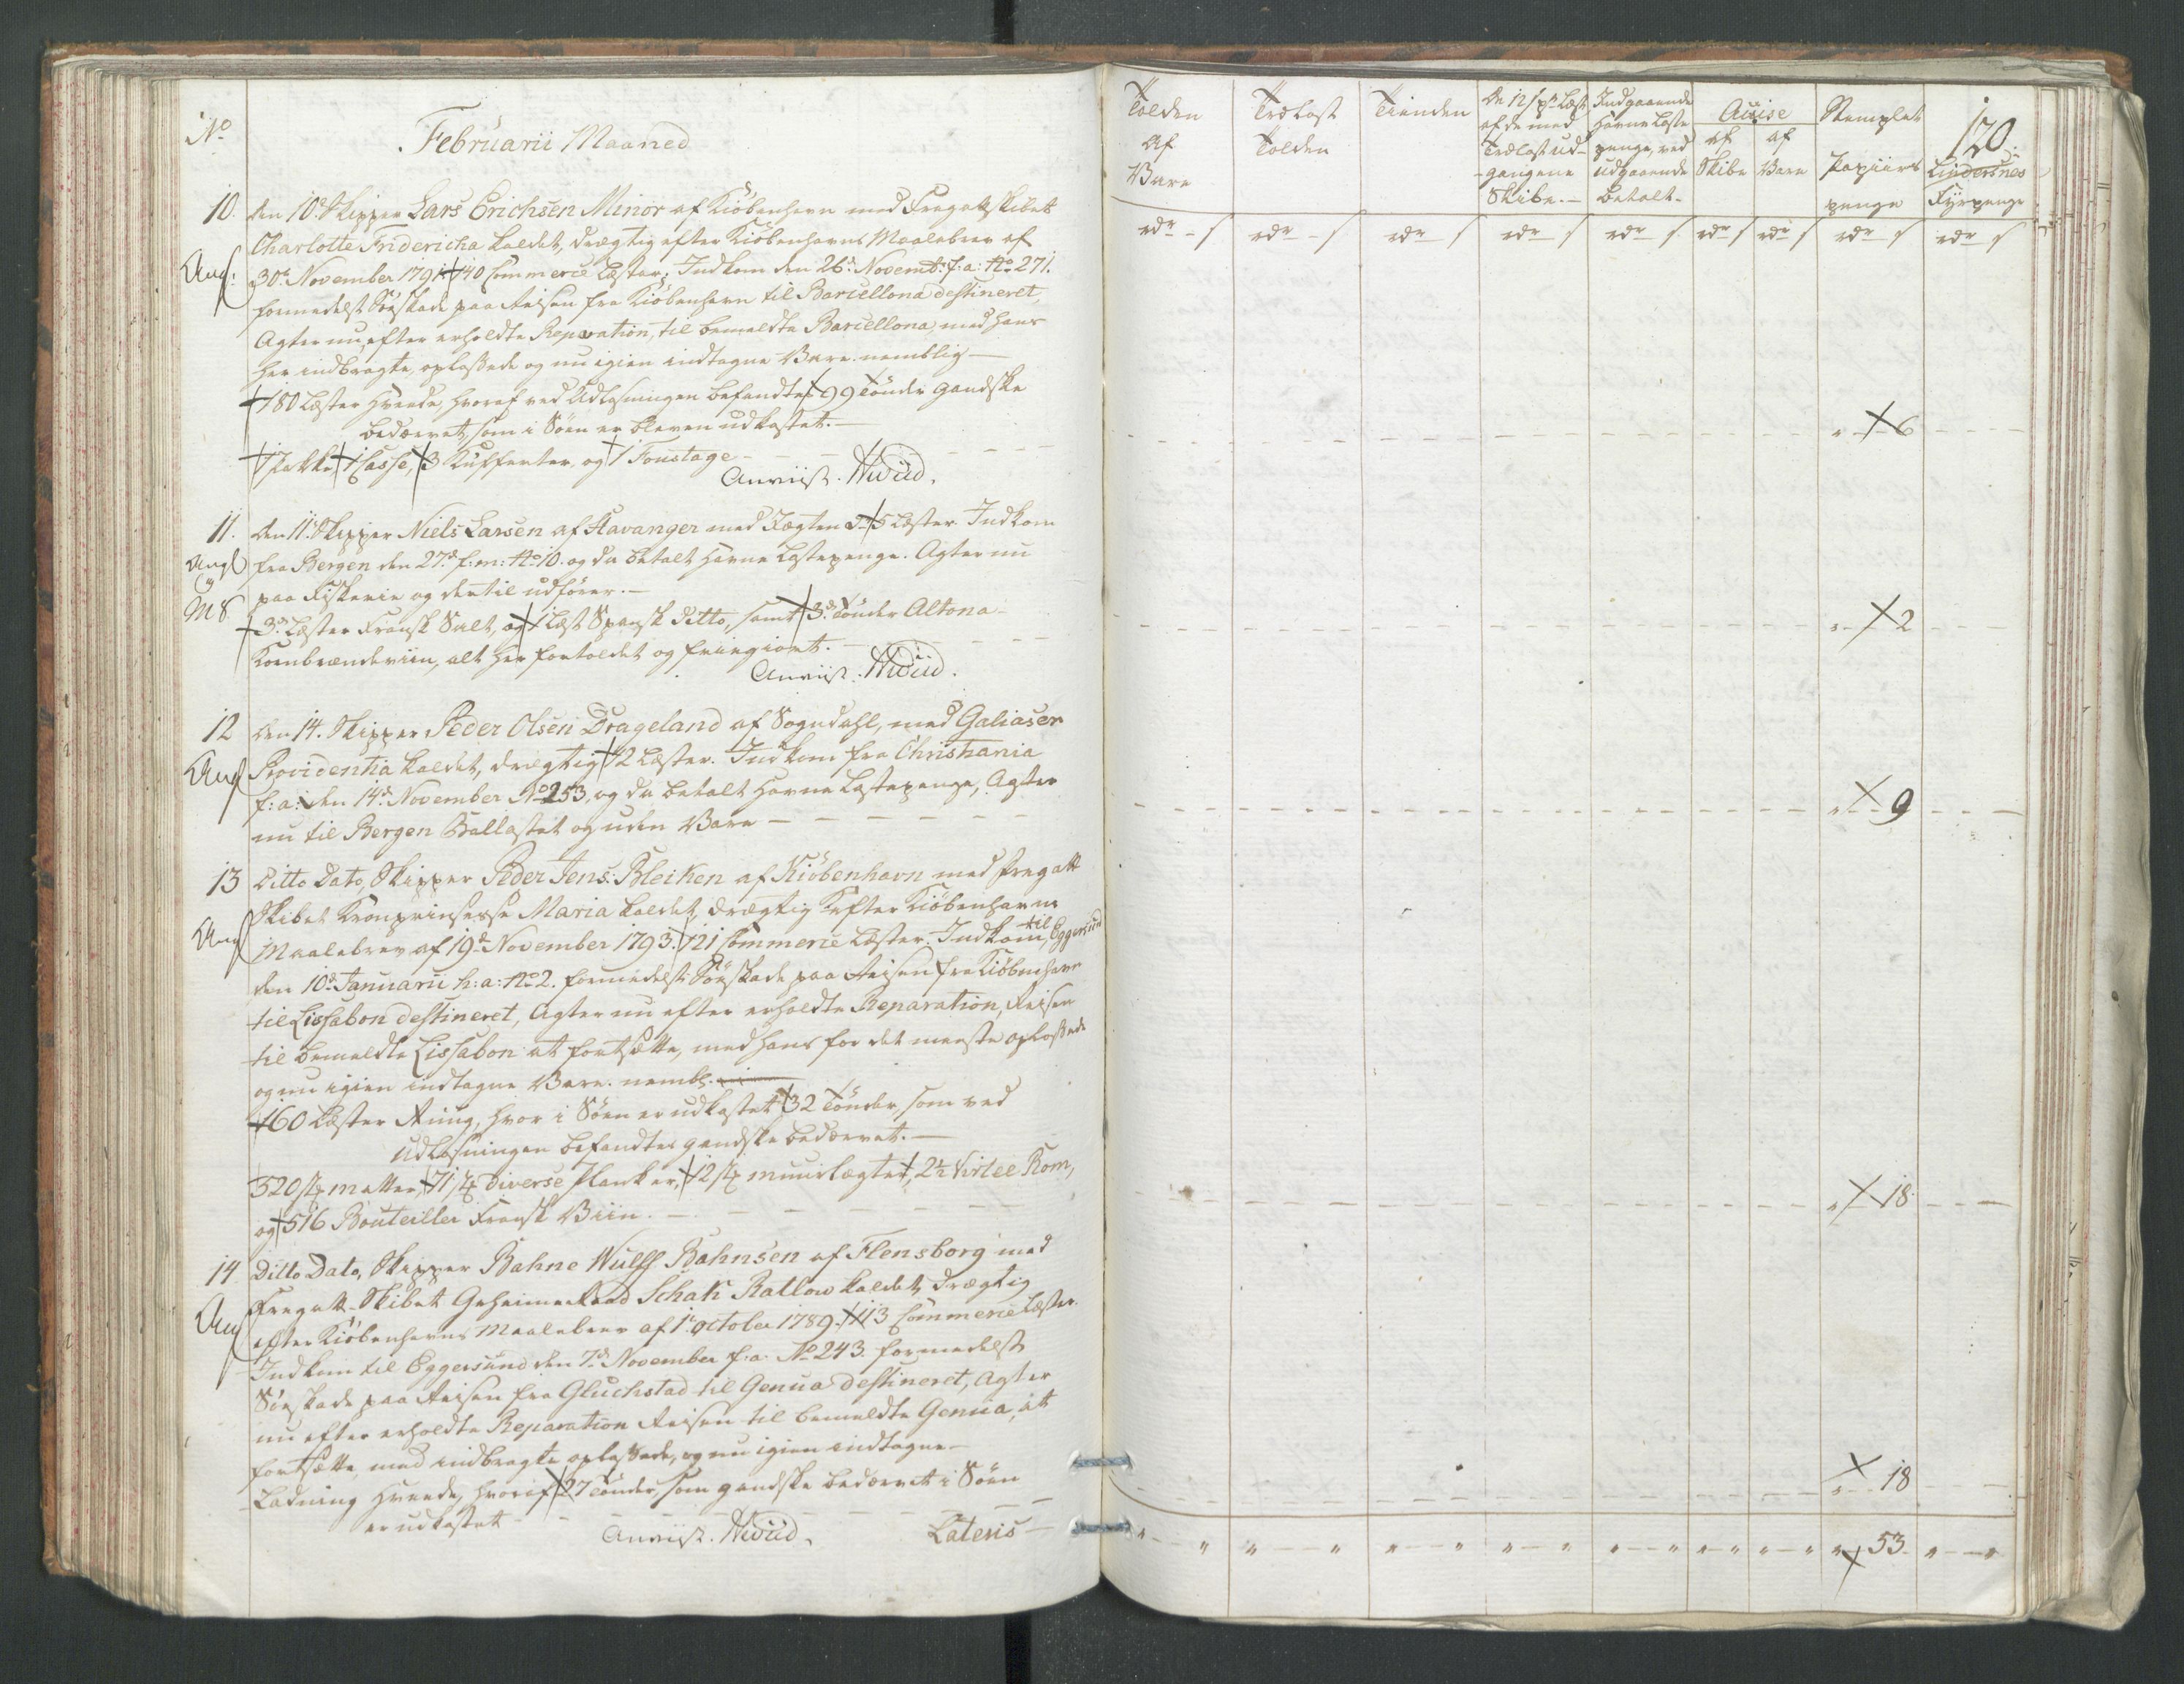 No
Februarii Maaned
10. den 10de Skipper Lars Erichsen Minor af Kiöbenhavn med Fregattskibet
Charlotte Fridericha kaldet, drægtig efter Kiöbenhavns Maalebrev af
Ang: 30te November 1791. 140 Commerce Læster; Indkom den 26de Novemb: f: a: No 271.
formedelst Söeskade paa Reisen fra Kiöbenhavn til Barcellona destineret,
Agter nu, efter erholdte Reparation, til bemeldte Barcellona, med hans
her indbragte, oplossede og nu igien indtagne Vare. nemblig
180 Læster Hvede, hvoraf ved Udlosningen befandtes 99 Tönder gandske
bedærvet, som i Söen er bleven udkastet.
1 Pakke 1 Casse, 3 Kufferter, og 1 Foustage
Anviist. Wiud.
11. den 11te Skipper Niels Larsen af Stavanger med Jægten 5 Læster. Indkom
Ang fra Bergen den 27de f: m: No 10. og da betalt Havne Lastepenge. Agter nu
M8 paa Fiskerie og dertil udförer.
3de Læster Fransk Salt, og 1 Læst Spansk Ditto, samt 3de Tönder Altona
Kornbrændeviin, alt her fortoldet og friegiort.
Anviist. Wiud.
12 den 14. Skipper Peder Olsen Drageland af Sogndahl, med Galiasen
Ang Providentia kaldet, drægtig 12 Læster. Indkom fra Christiania
f: a: den 14de November No 253, og da betalt Havne Lastepenge, Agter
nu til Bergen Ballastet og uden Vare
13 Ditto Dato, Skipper Peder Jens: Bleiken af Kiöbenhavn med Fregatt
Skibet Kronprinsesse Maria kaldet, drægtig efter Kiöbenhavns
Ang Maalebrev af 19de November 1793. 121 Commerce Læster. Indkom til Eggersund
den 10de Januarii h: a: No 2. formedelst Söeskade paa Reisen fra Kiöbenhavn
til Lissabon destineret, Agter nu efter erholdte Reparation, Reisen
til bemeldte Lissabon at fortsætte, med hans for det meeste oplossede
og nu igien indtagne Vare. nembl.
160 Læster Rug, hvor i Söen er udkastet 32 Tönder, som ved
Udlosningen befandtes gandske bedærvet.
320 st matter, 71 st Diverse Planker, 12 st muurlægter, 2½ Virtel Rom,
og 516 Bouteiller Fransk Viin.
14 Ditto Dato, Skipper Bahne Wulff Bahnsen af Flensborg med
Fregatt-Skibet Geheimeraad Schak Ratlow kaldet, drægtig
Ang efter Kiöbenhavns Maalebrev af 1te October 1789. 113 Commerce Læster.
Indkom til Eggersund den 7de November f: a: No 243. formedelst
Söeskade paa Reisen fra Gluchstad til Genua destineret, Agter
nu efter erholdte Reparation Reisen til bemeldte Genua, at
fortsætte, med indbragte oplossede, og nu igien indtagne
Ladning Hvede, hvoraf 27 Tönder, som gandske bedærvet i Söen
er udkastet
Anviist. Wiud.
Lateris
120.
Tolden Af Vare
Trælast Tolden
Tienden
De 12 s pr Læst af de med Trælast ud-gangene Skibe.
Indgaaende Havne Laste penge, ved udgaaende betalt.
Acise
af Skibe
af Vare
Stemplet Papiirs penge
Lindersnes Fyrpenge
rdr s rdr s rdr s rdr s rdr s rdr s rdr s rdr s rdr s
" 6
" 2
" 9
" 18
" 18
" " " " " " " " " " " " " " " 53. " "